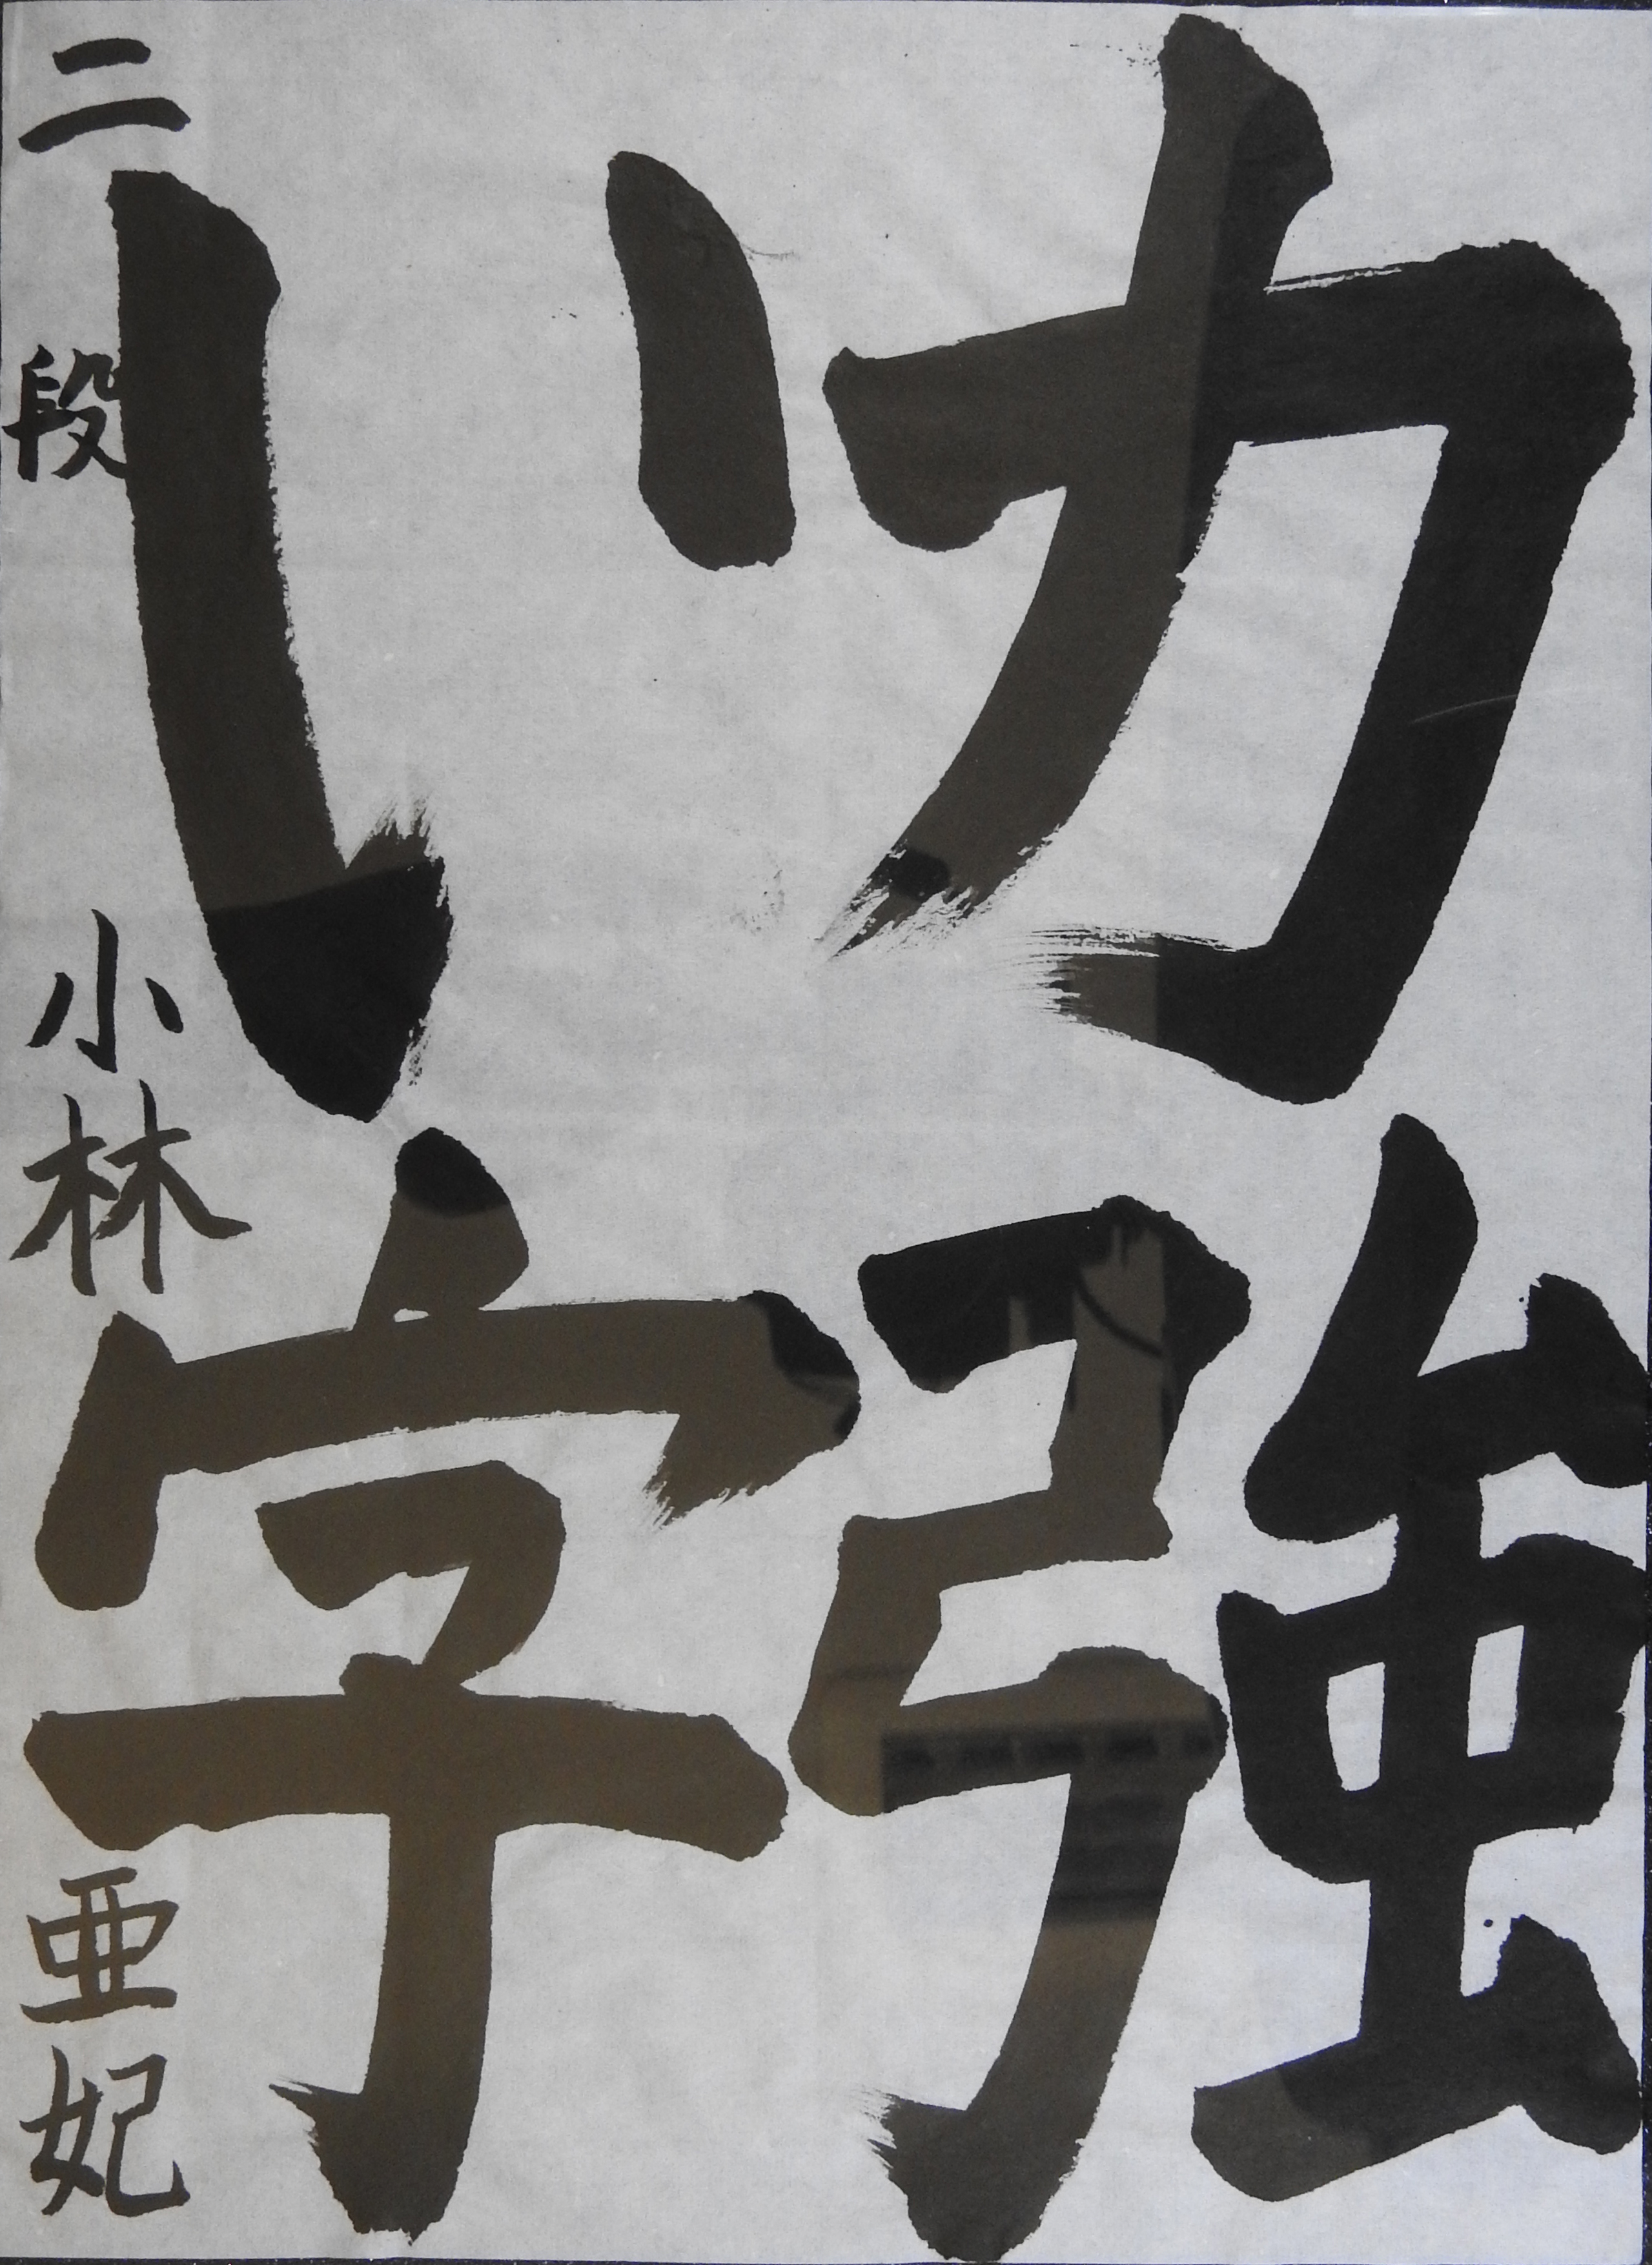 力強
い字
二段 小林亜妃